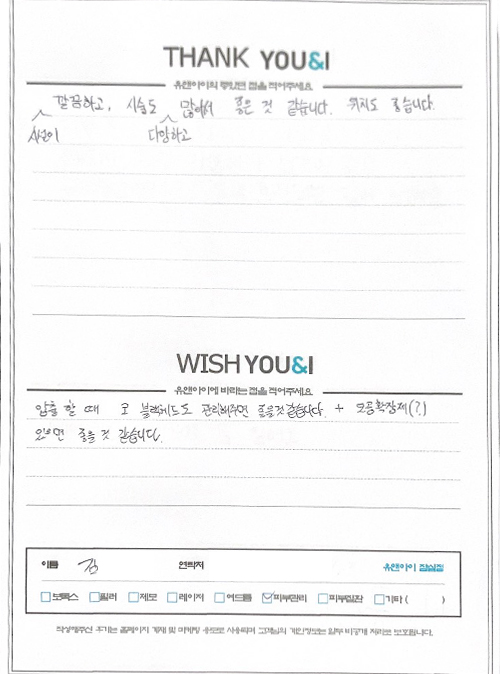 THANK YOU&I
유앤아이의 좋았던 점을 적어주세요
깔끔하고, 시술도 많아서 좋은 것 같습니다. 위치도 좋습니다.
시설이 다양하고
WISH YOU&I
유앤아이에 바라는 점을 적어주세요
압출 할 때 코 블랙헤드도 관리해주면 좋을것 같습니다. + 모공확장제(?)
있으면 좋을 것 같습니다.
이름 김 연락처 유앤아이 잠실점
보톡스 필러 제모 레이저 여드름 피부관리 피부질환 기타 ( )
작성해주신 후기는 홈페이지 게재 및 마케팅 용도로 사용되며 고객님의 개인정보는 일부 비공개 처리로 보호됩니다.